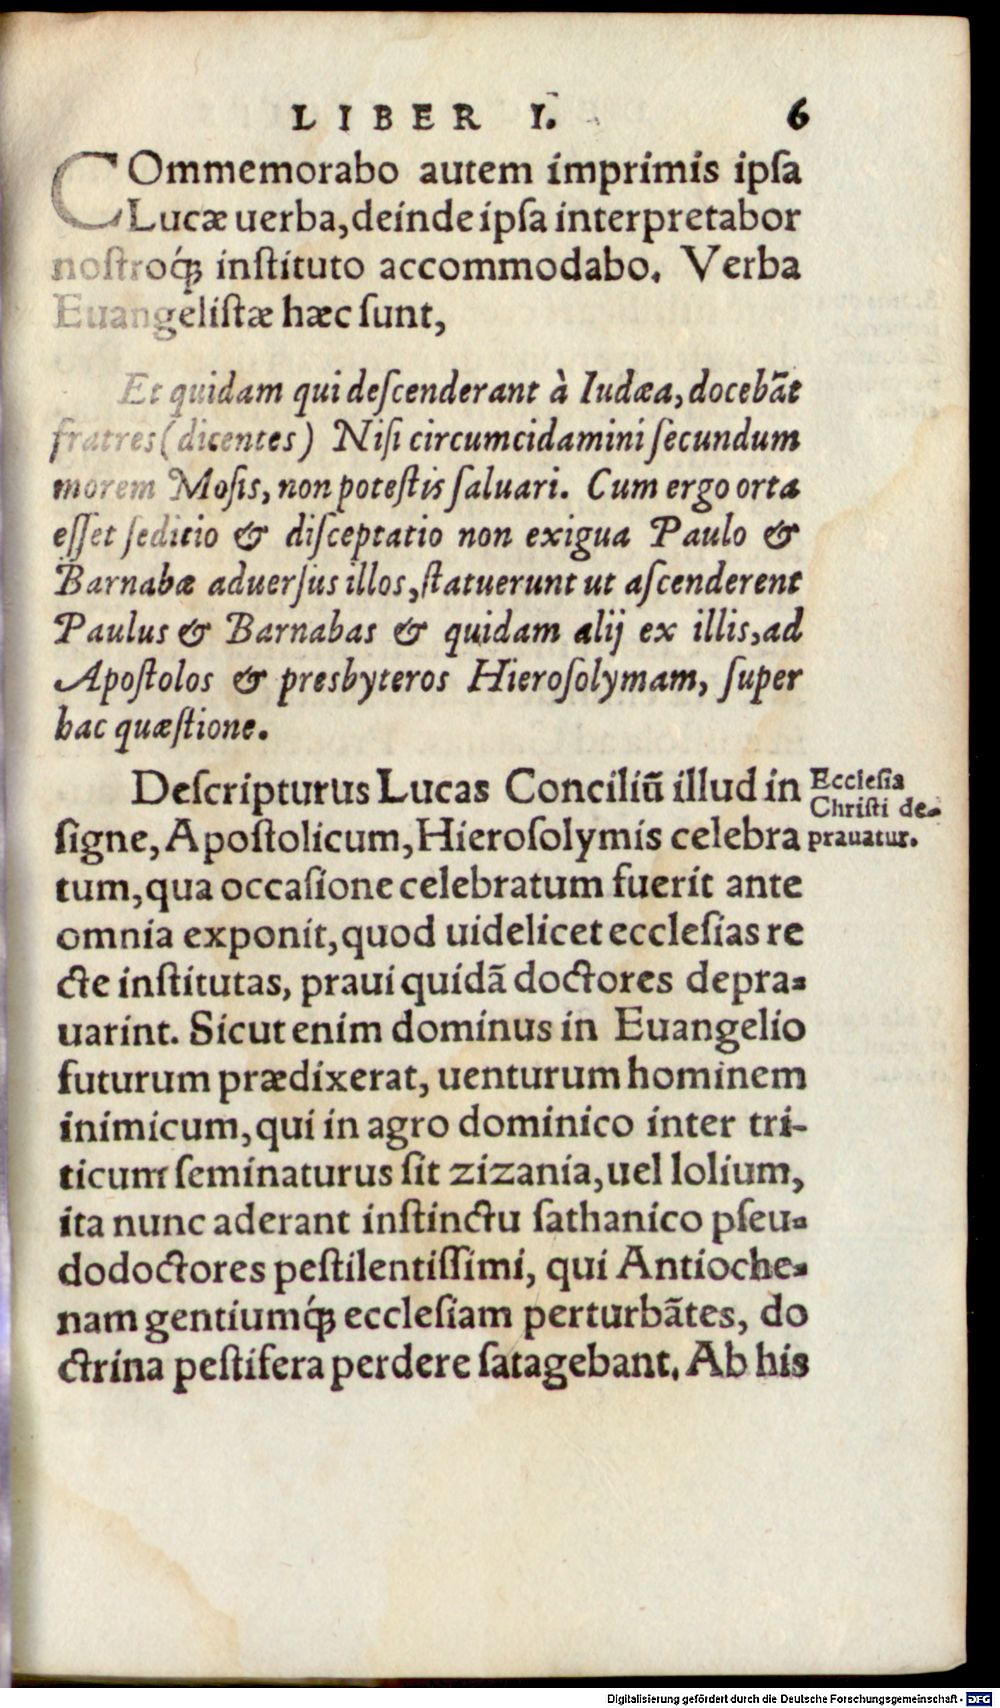 LIBER I. 6
COmmemorabo autem imprimis ipſa
Lucæ uerba, deinde ipſa interpretabor
noſtroq́ꝫ inſtituto accommodabo. Verba
Euangeliſtæ hæc ſunt,
Et quidam qui deſcenderant à Iudæa, docebãt
fratres (dicentes) Niſi circumcidamini ſecundum
morem Moſis, non poteſtis ſaluari. Cum ergo orta
eſſet ſeditio & diſceptatio non exigua Paulo &
Barnabæ aduerſus illos, ſtatuerunt ut aſcenderent
Paulus & Barnabas & quidam alij ex illis, ad
Apoſtolos & presbyteros Hieroſolymam, ſuper
hac quæſtione.
Deſcripturus Lucas Conciliũ illud in
ſigne, Apoſtolicum, Hieroſolymis celebra
tum, qua occaſione celebratum fuerit ante
omnia exponit, quod uidelicet eccleſias re
cte inſtitutas, praui quidã doctores depra-
uarint. Sicut enim dominus in Euangelio
futurum prædixerat, uenturum hominem
inimicum, qui in agro dominico inter tri-
ticum ſeminaturus ſit zizania, uel lolium,
ita nunc aderant inſtinctu ſathanico pſeu-
dodoctores peſtilentiſſimi, qui Antioche-
nam gentiumq́ꝫ eccleſiam perturbãtes, do
ctrina peſtifera perdere ſatagebant. Ab his
Eccleſia
Chriſti de-
prauatur.
Digitalisierung gefördert durch die Deutsche Forschungsgemeinschaft - DFG